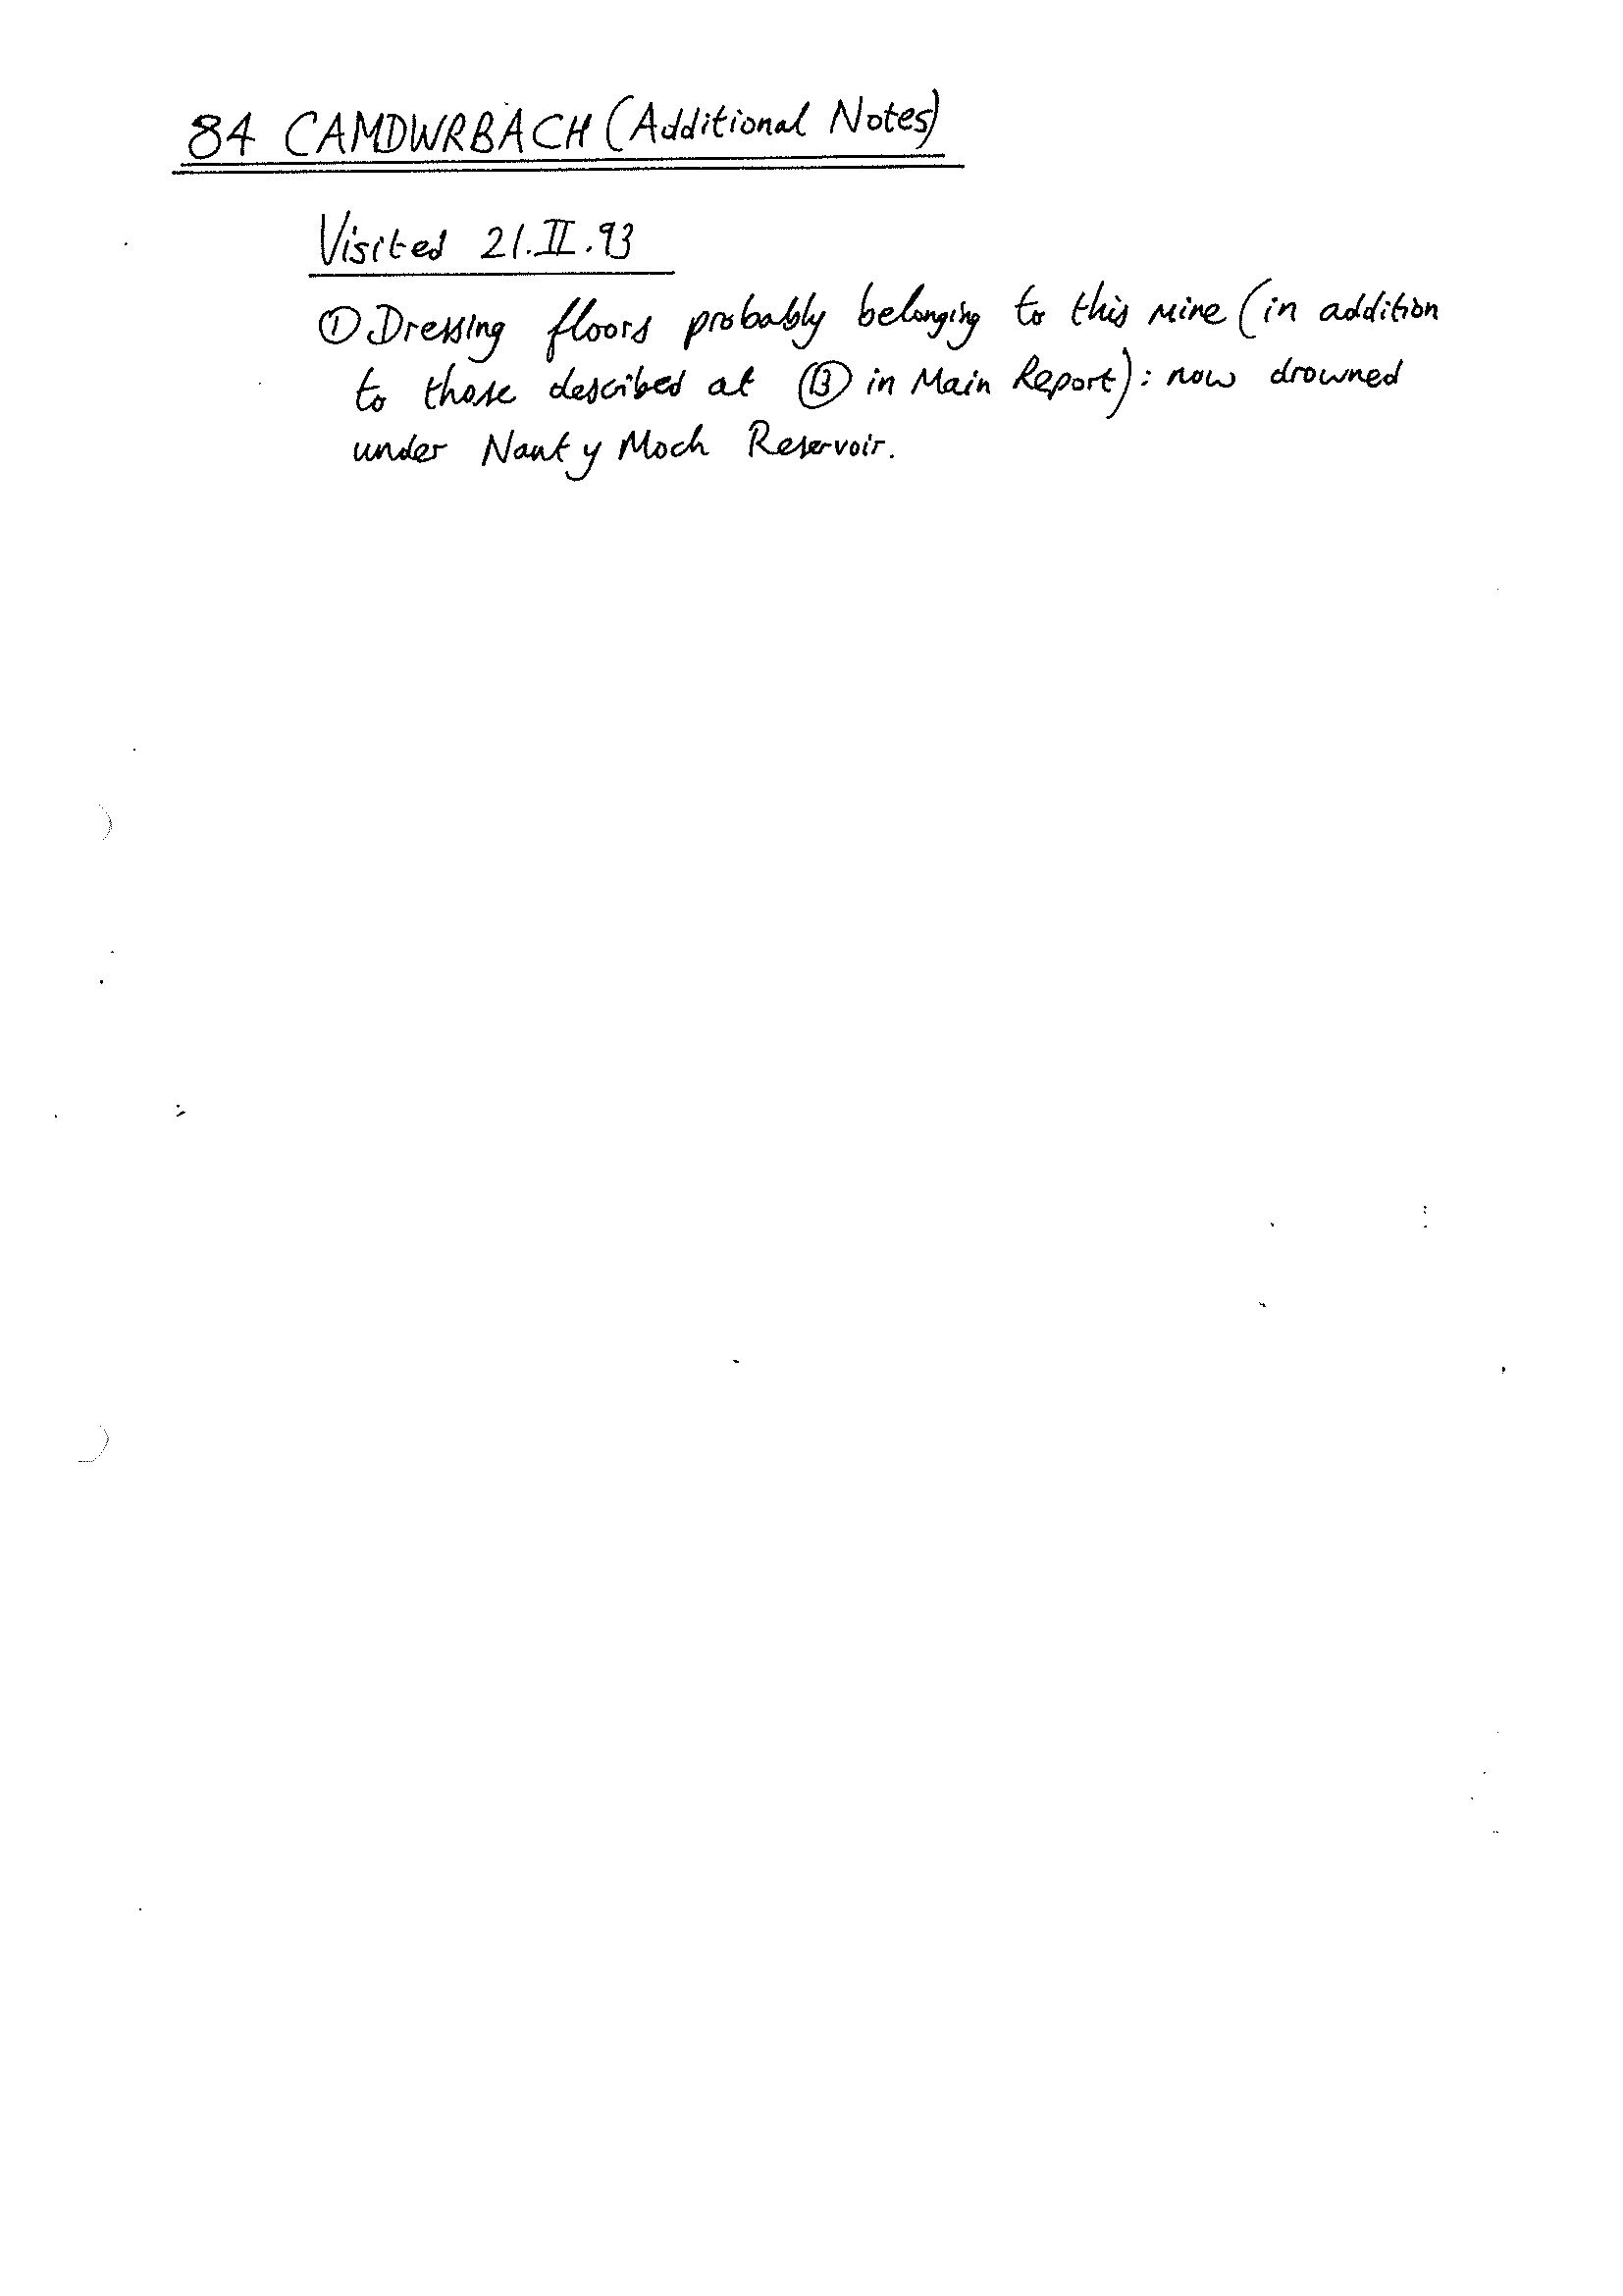 84 CAMDWRBACH (Additional Notes)
Visited 21.II.93
① Dressing floors probably belonging to this mine (in addition
to those described at ⑬ in Main Report): now drowned
under Nant y Moch Reservoir.